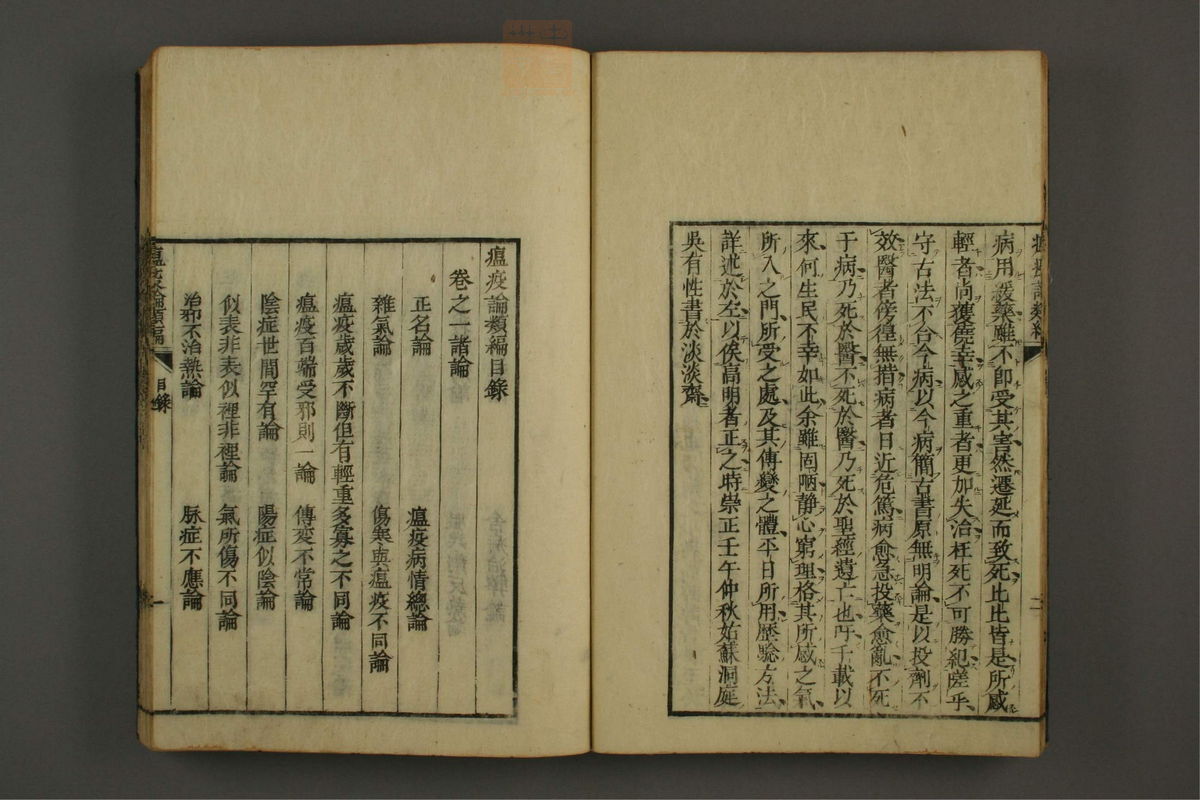 病用緩藥雖不即受其害然遷延而致死比比皆是所感
輕者尚獲僥幸感之重者更加失治枉死不可勝紀嗟乎
守古法不合今病以今病簡古書原無明論是以投劑不
效醫者傍徨無措病者日近危篤病愈急投藥愈亂不死
于病乃死於醫不死於醫乃死於聖經遺亡也吁千載以
來何生民不幸如此余雖固陋靜心窮理格其所感之氣
所入之門所受之處及其傳變之體平日所用歷驗方法
詳述於左以俟高明者正之時崇正壬午仲秋姑蘇洞庭
吳有性書於淡淡齋
瘟疫論類編目錄
卷之一諸論
正名論 瘟疫病情總論
雜氣論 傷寒與瘟疫不同論
瘟疫歲歲不斷但有輕重多寡之不同論
瘟疫百端受邪則一論 傳変不常論
陰症世間罕有論 陽症似陰論
似表非表似裡非裡論 氣所傷不同論
治邪不治熱論 脉症不應論
瘟疫論類編 目錄 一